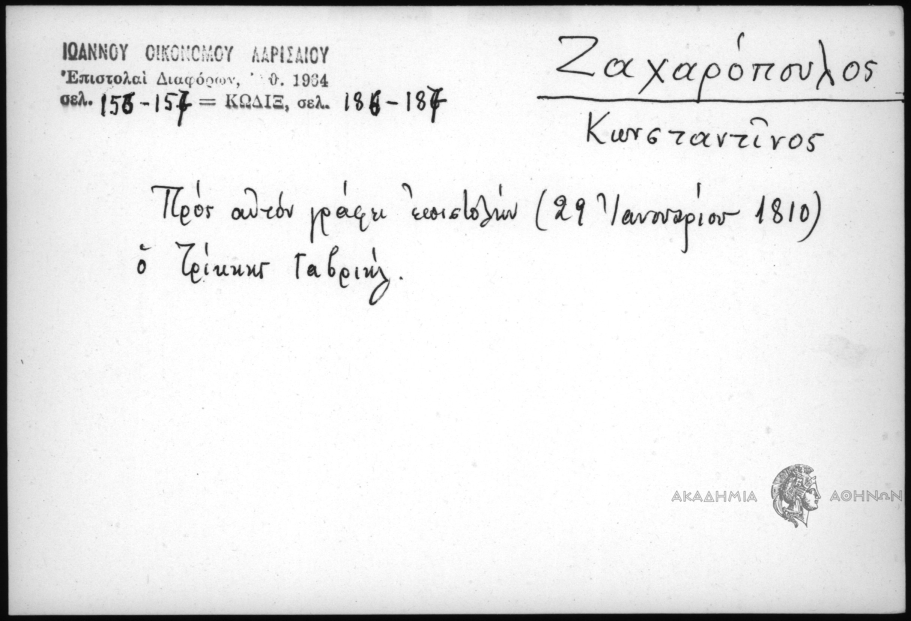 ΙΩΑΝΝΟΥ ΟΙΚΟΝΟΜΟΥ ΛΑΡΙΣΑΙΟΥ
Ἐπιστολαὶ Διαφόρων, 1964
σελ. 156-157 = ΚΩΔΙΞ, σελ. 186-187
Ζαχαρόπουλος
Κωνσταντῖνος
Πρὸς αὐτὸν γράφει ἐπιστολὴν (29 Ἰανουαρίου 1810)
ὁ Τρίκκης Γαβριήλ.
ΑΚΑΔΗΜΙΑ ΑΘΗΝΩΝ